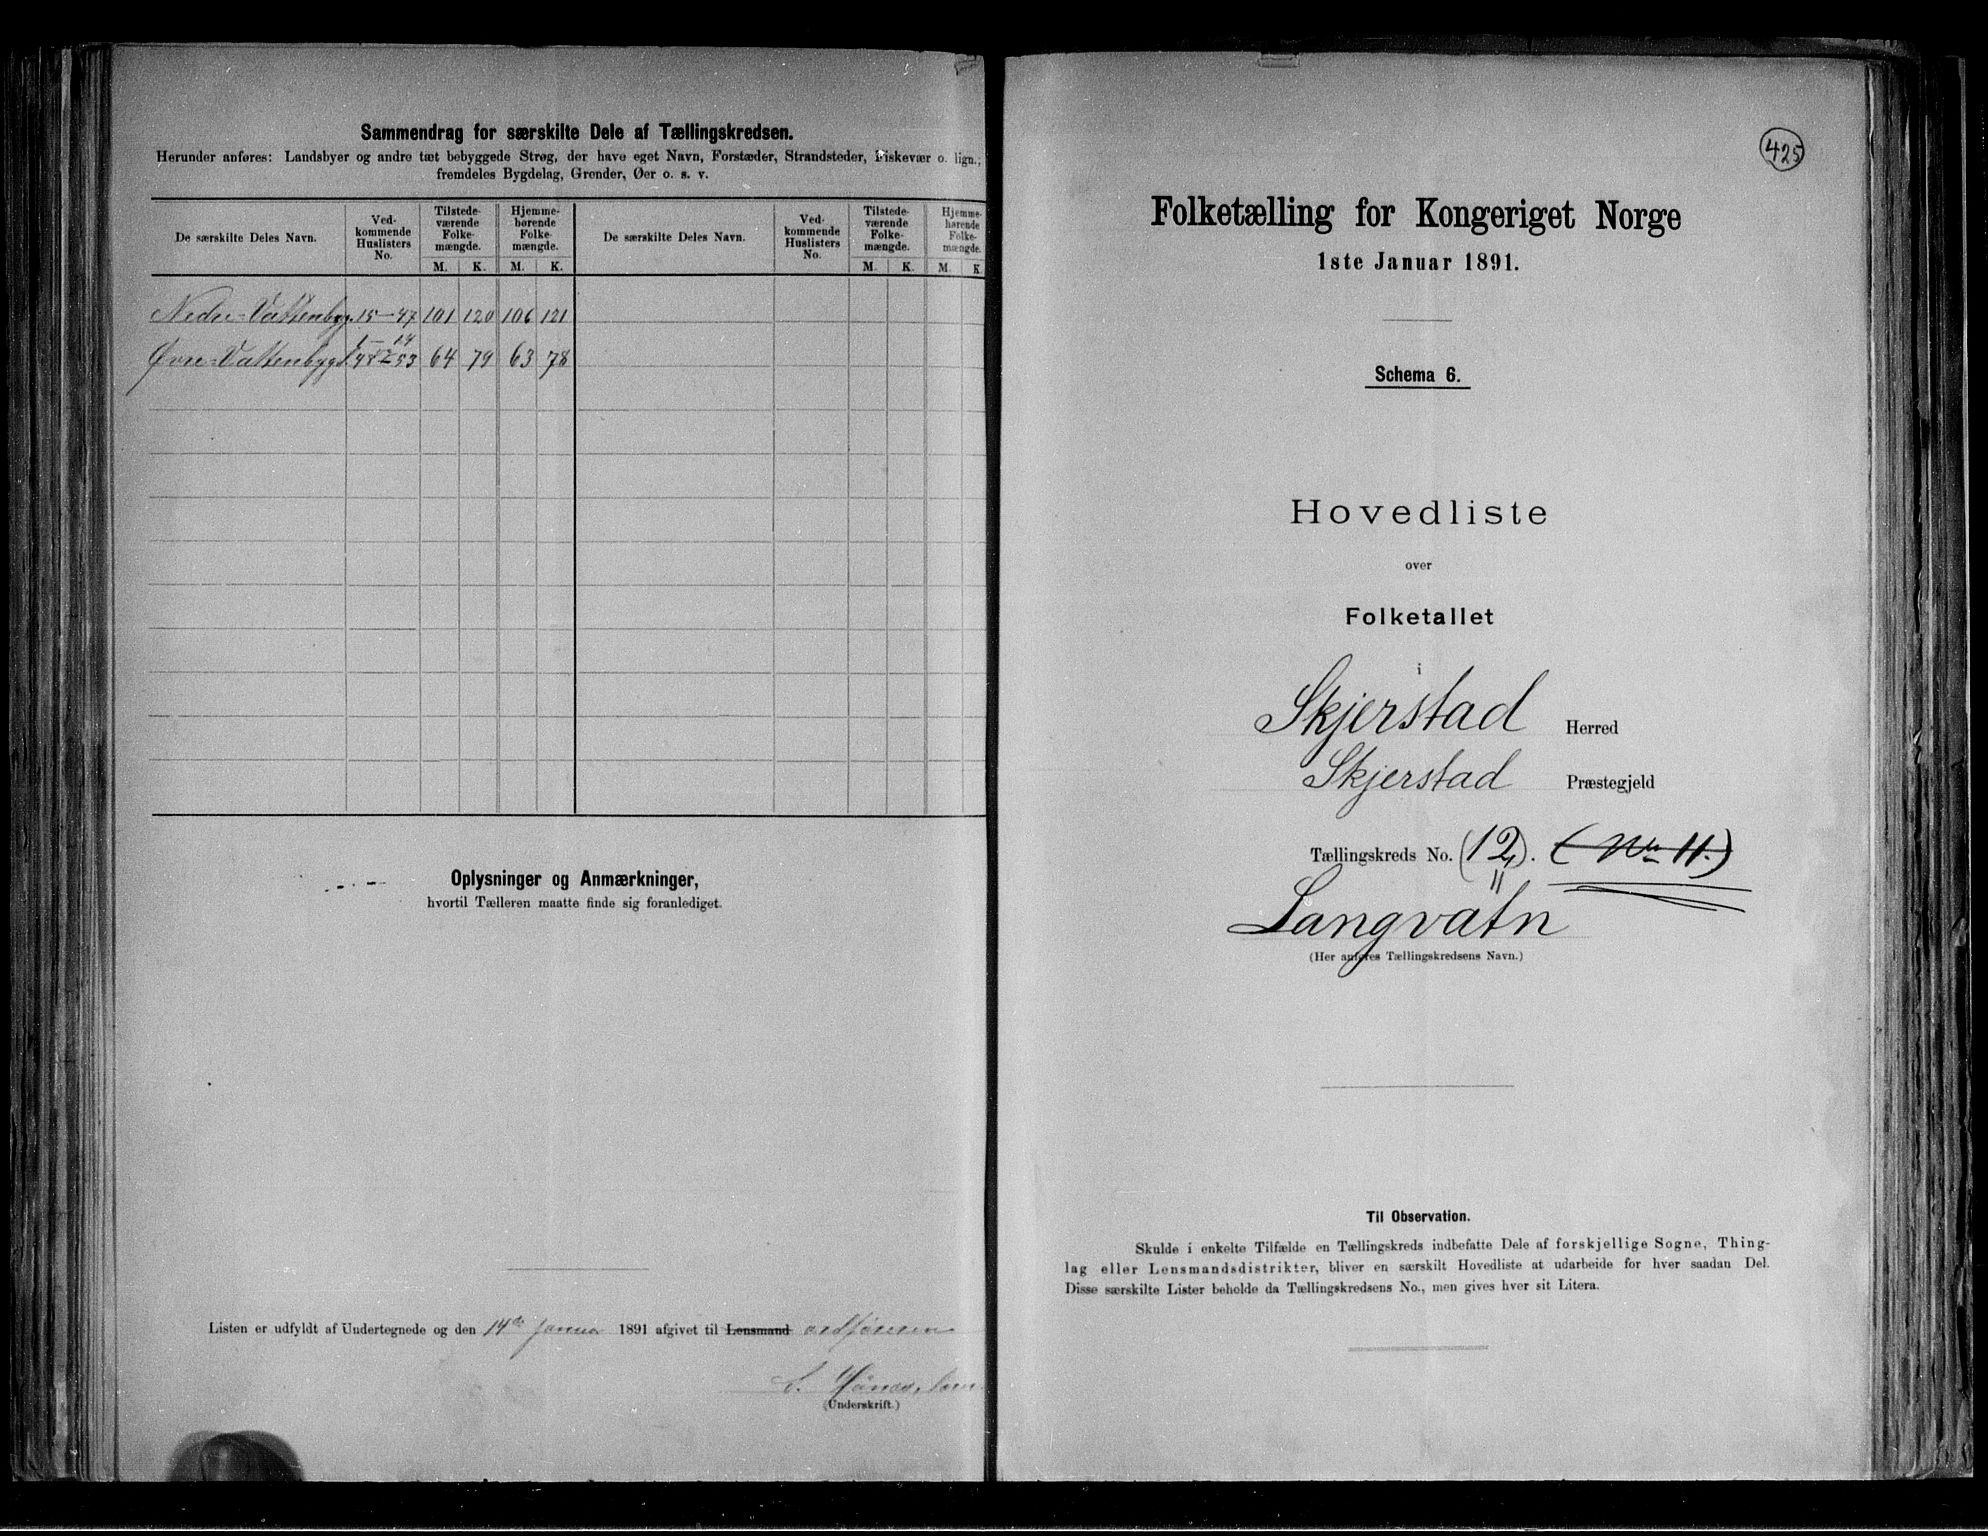 Sammendrag for særskilte Dele af Tællingskredsen.
Herunder anføres: Landsbyer og andre tæt bebyggede Strøg, der have eget Navn, Forstæder, Strandsteder, Fiskevær o. lign.;
fremdeles Bygdelag, Grender, Øer o. s. v.
De særskilte Deles Navn. Ved-kommende Huslisters No. Tilstede-værende Folke-mængde. Hjemme-hørende Folke-mængde. De særskilte Deles Navn. Ved-kommende Huslisters No. Tilstede-værende Folke-mængde. Hjemme-hørende Folke-mængde.
M. K. M. K. M. K. M. K.
Nedre-Vattenbyg. 15-47 101 120 106 121
Øvre-Vattenbygd 1-14 48-53 64 79 63 78
Oplysninger og Anmærkninger,
hvortil Tælleren maatte finde sig foranlediget.
Listen er udfyldt af Undertegnede og den 14de Januar 1891 afgivet til Lensmand
(Underskrift.)
425
Folketælling for Kongeriget Norge
1ste Januar 1891.
Schema 6.
Hovedliste
over
Folketallet
i
Skjerstad Herred
Skjerstad Præstegjeld
Tællingskreds No. (12). (No 11.)
Langvatn
(Her anføres Tællingskredsens Navn.)
Til Observation.
Skulde i enkelte Tilfælde en Tællingskreds indbefatte Dele af forskjellige Sogne, Thing-
lag eller Lensmandsdistrikter, bliver en særskilt Hovedliste at udarbeide for hver saadan Del.
Disse særskilte Lister beholde da Tællingskredsens No., men gives hver sit Litera.